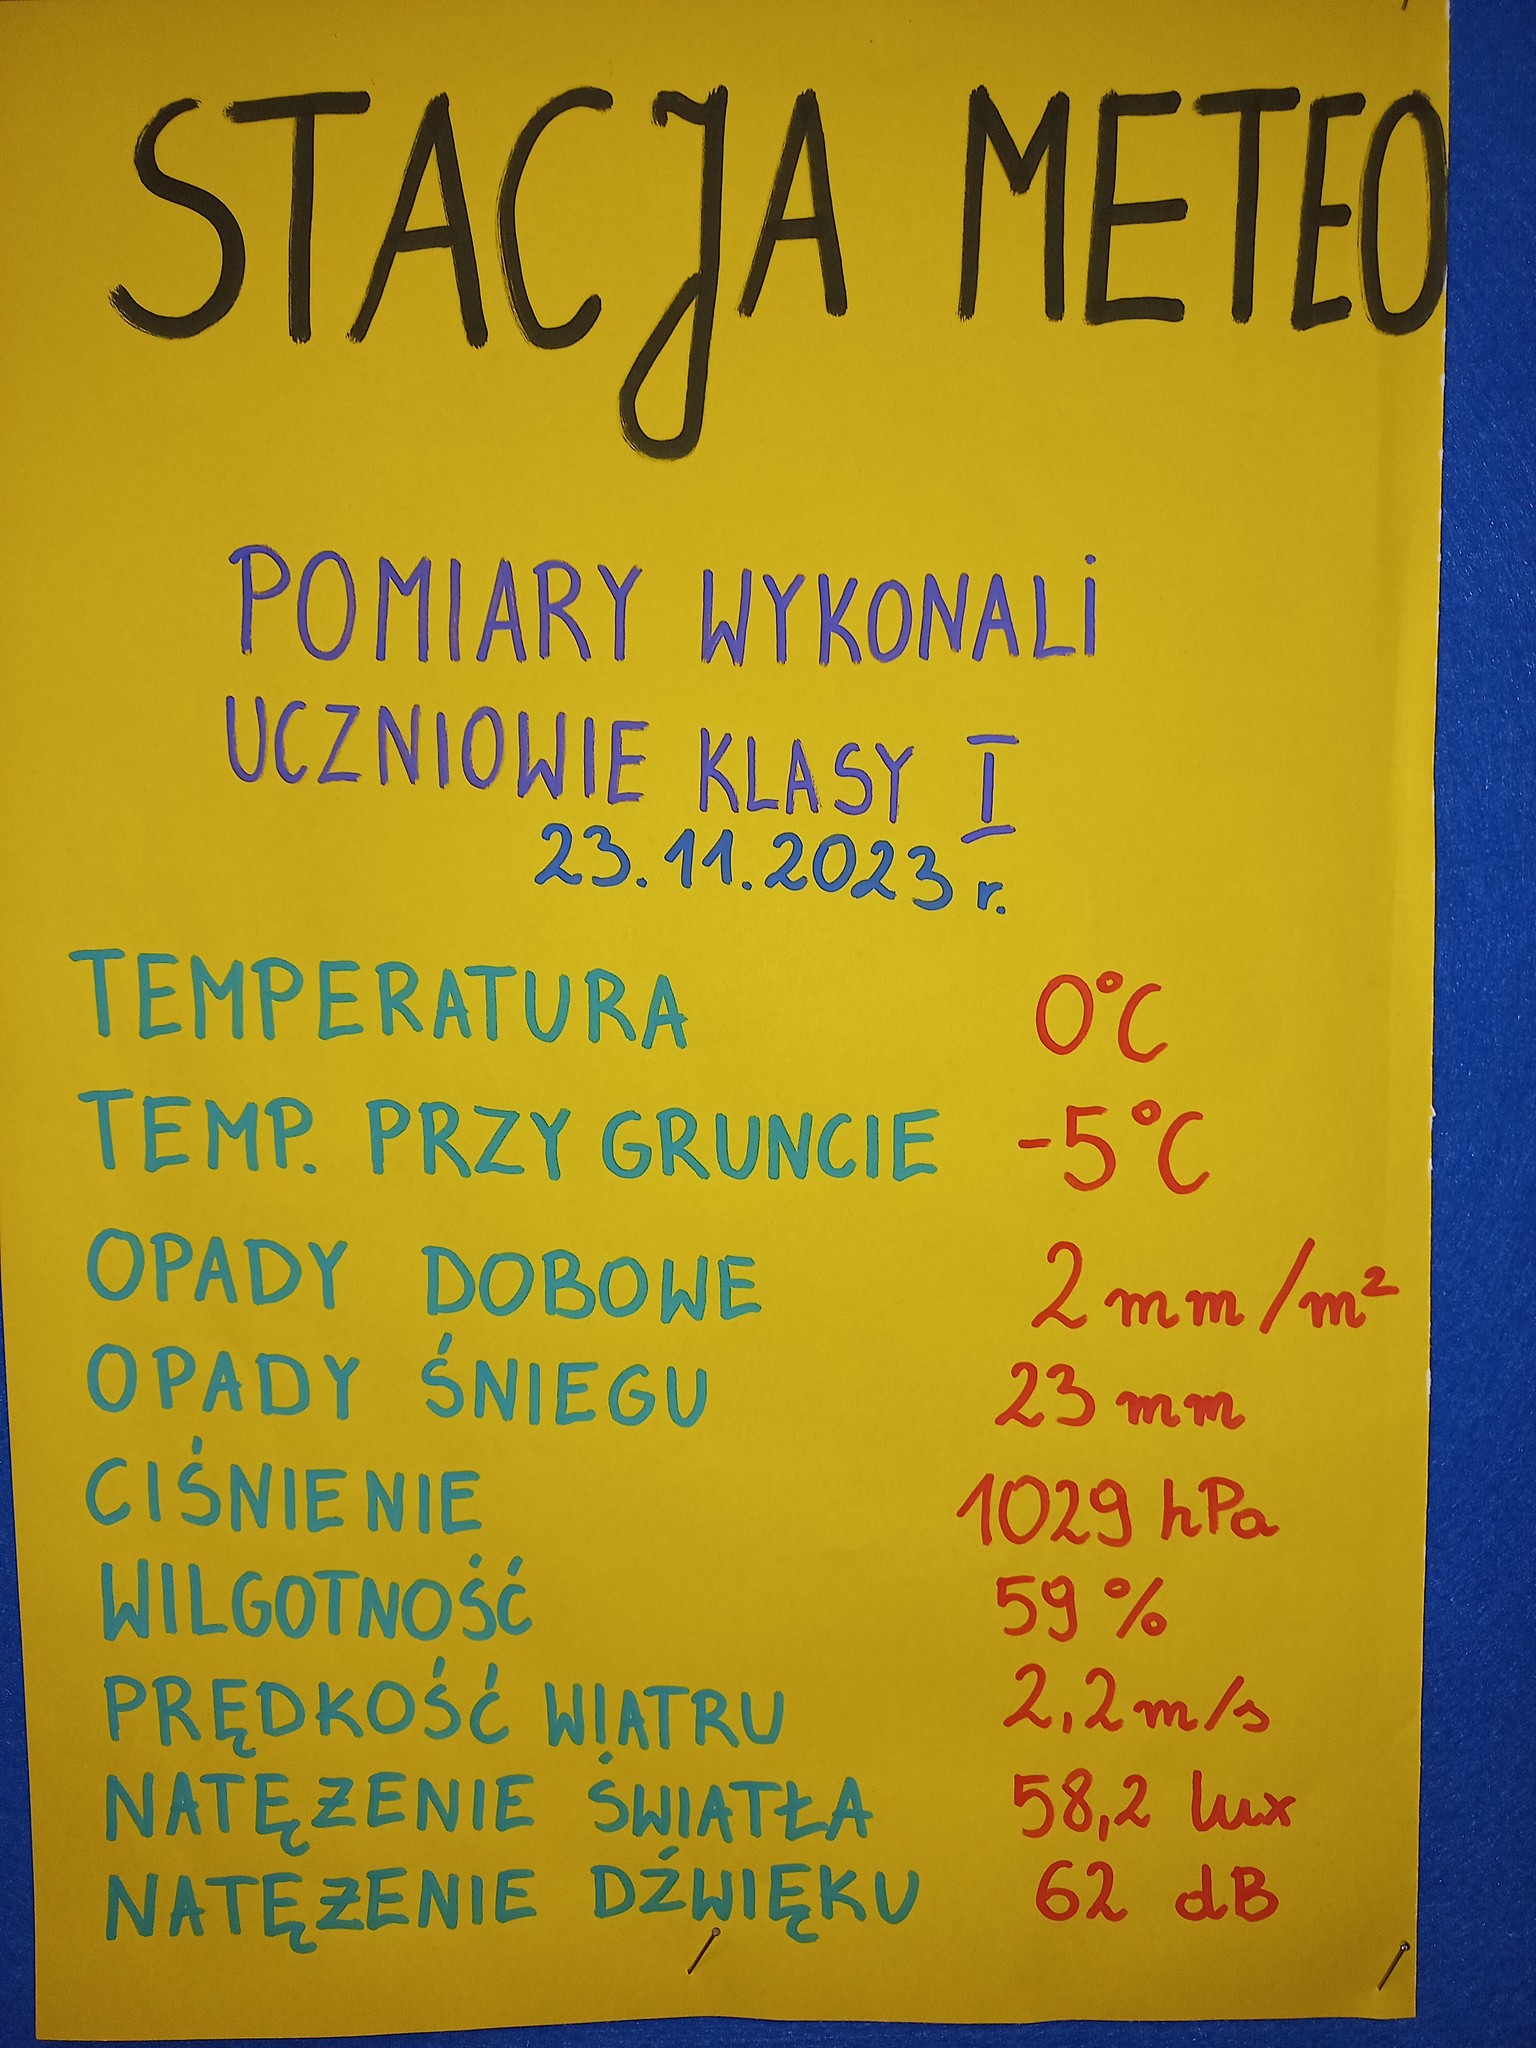 STACJA METEO
POMIARY WYKONALI
UCZNIOWIE KLASY I
23.11.2023 r.
TEMPERATURA 0°C
TEMP. PRZY GRUNCIE -5°C
OPADY DOBOWE 2 mm/m²
OPADY ŚNIEGU 23 mm
CIŚNIENIE 1029 hPa
WILGOTNOŚĆ 59 %
PRĘDKOŚĆ WIATRU 2,2 m/s
NATĘŻENIE ŚWIATŁA 58,2 lux
NATĘŻENIE DŹWIĘKU 62 dB